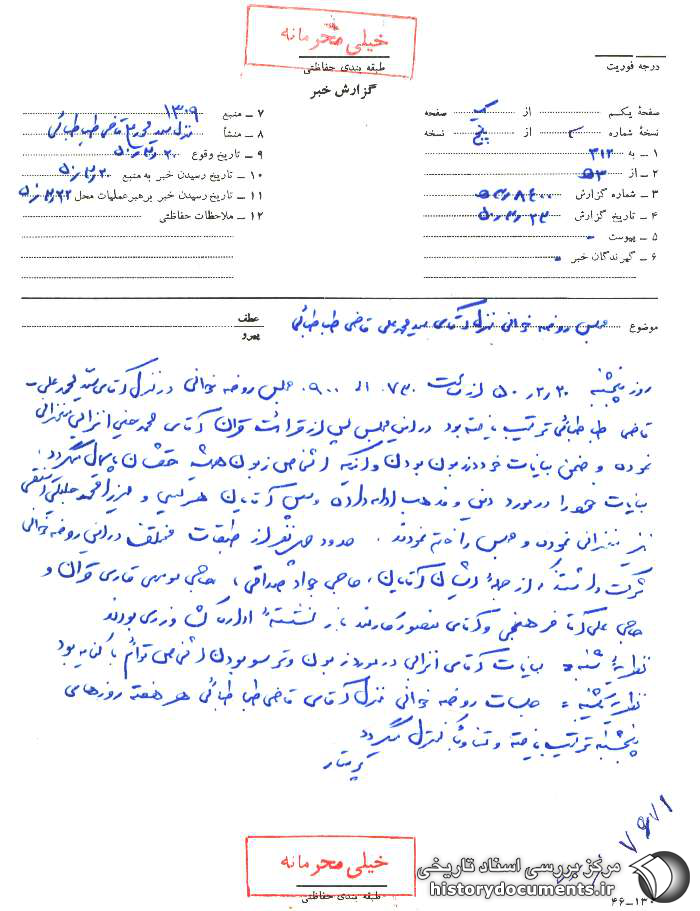 خیلی محرمانه
طبقه بندی حفاظتی
درجه فوریت
گزارش خبر
صفحهٔ یکم از یک صفحه
نسخهٔ شماره ۲ از پنج نسخه
۱ ـ به ۳۱۲
۲ ـ از ۵۳
۳ ـ شماره گزارش
۴ ـ تاریخ گزارش ۵۰٫۲٫۲۳
۵ ـ پیوست -
۶ ـ گیرندگان خبر -
۷ ـ منبع ۱۳۰۹
۸ ـ منشأ منزل سید محمدعلی قاضی طباطبائی
۹ ـ تاریخ وقوع ۵۰٫۲٫۲۰
۱۰ ـ تاریخ رسیدن خبر به منبع ۵۰٫۲٫۲۰
۱۱ ـ تاریخ رسیدن خبر برهبر عملیات محل ۵۰٫۲٫۲۲
۱۲ ـ ملاحظات حفاظتی
موضوع مجلس روضه خوانی منزل آقای سید محمد علی قاضی طباطبائی
عطف
پیرو
روز پنجشنبه ۵۰٫۲٫۲۰ از ساعت ۰۷۳۰ الی ۰۹۰۰ مجلس روضه خوانی در منزل آقای سید محمد علی
قاضی طباطبائی ترتیب یافته بود در این مجلس پس از قرائت قرآن آقای محمد حسین انزابی سخنرانی
نموده و ضمن بیانات خود در مورد زبون بودن و اینکه اشخاص زبون همیشه حقشان پایمال میگردد.
بیانات خود را در مورد دین و مذهب ادامه داده و سپس آقایان هریسی و میرزا محمد
نیز سخنرانی نموده و مجلس را ختم نمودند. حدود صد نفر از طبقات مختلف در این روضه خوانی
شرکت داشتند از جملهٔ ایشان آقایان، حاجی جواد صداقی، حاجی موسی قاری قرآن و
حاجی علی آقا فرهنچی و آقای منصور کارمند بازنشستهٔ اداره کشاورزی بودند
نظریهٔ شنبه = بیانات آقای انزابی در مورد زبون و ترسو بودن اشخاص توأم با کنایه بود
نظریهٔ یکشنبه = جلسات روضه خوانی منزل آقای قاضی طباطبائی هر هفته روزهای
پنجشنبه ترتیب یافته و متناوباً کنترل میگردد
خیلی محرمانه
طبقه بندی حفاظتی
مرکز بررسی اسناد تاریخی
historydocuments.ir